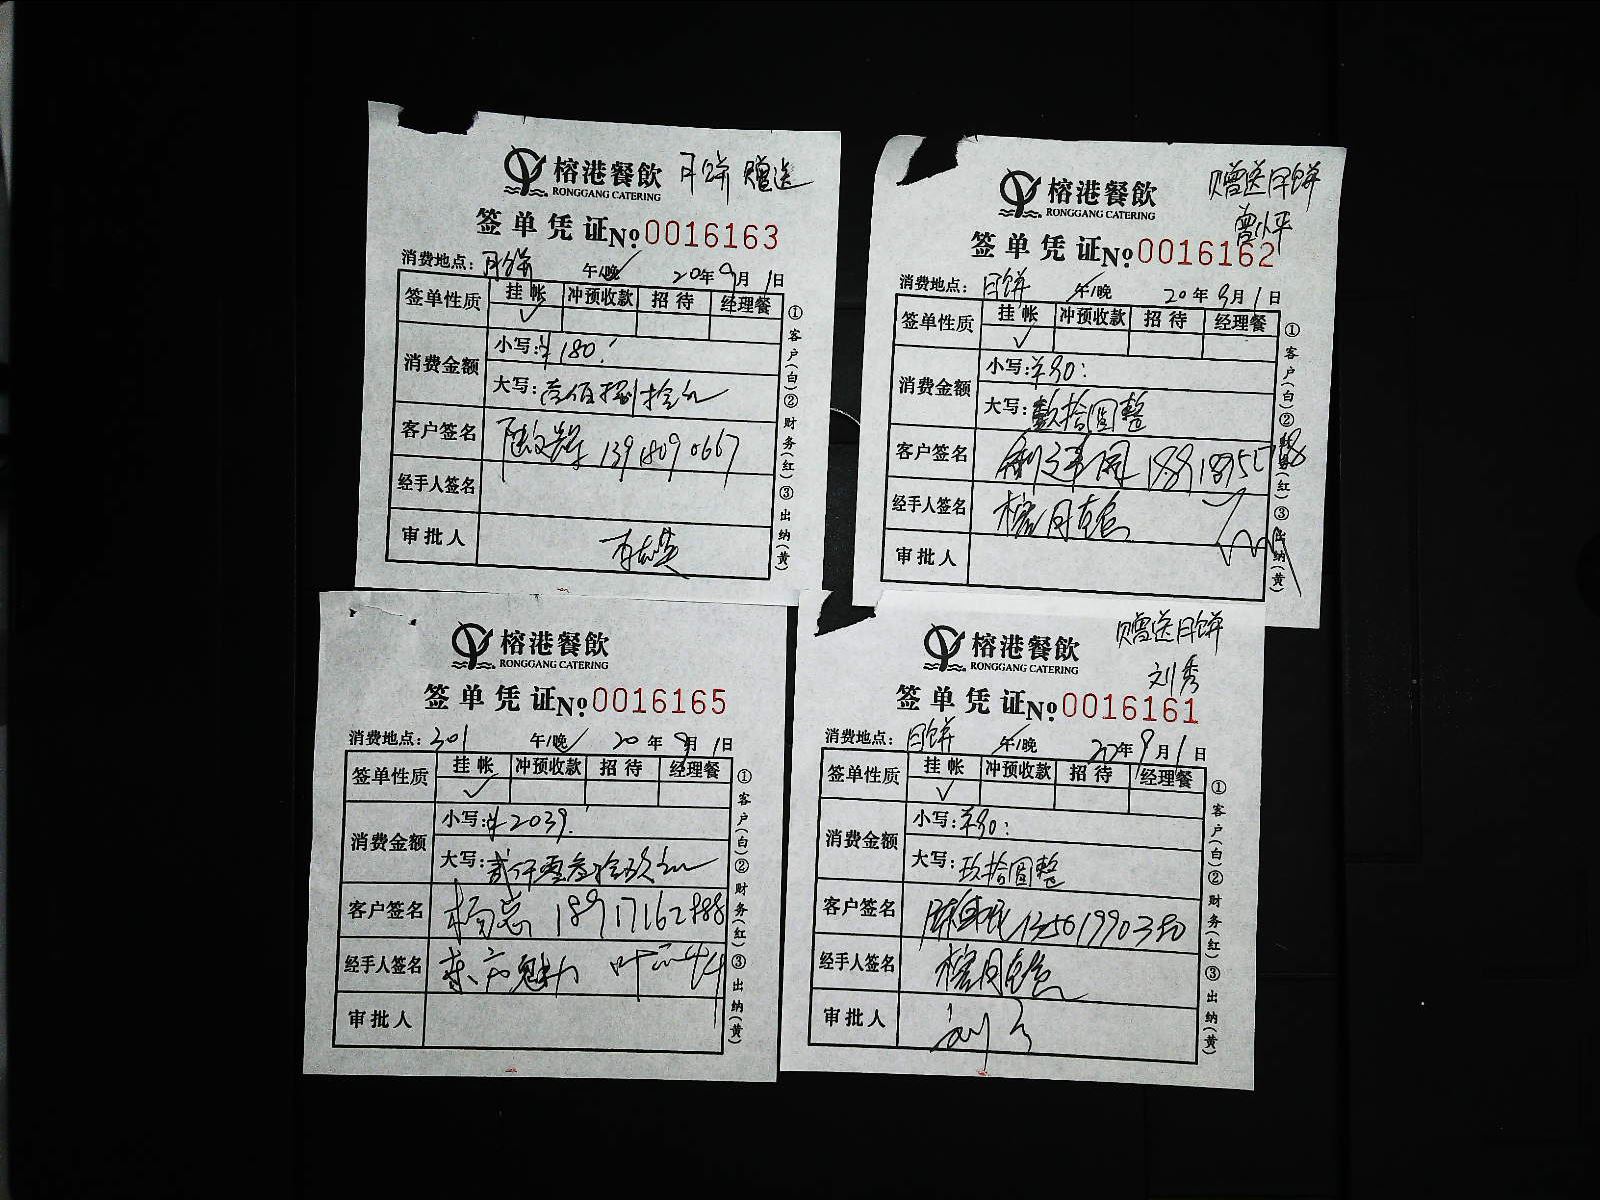 榕港餐飲 月饼 赠送
RONGGANG CATERING
签单凭证 No. 0016163
消费地点: 月饼 午/晚 20年9月1日
签单性质 挂帐 冲预收款 招待 经理餐
✓
消费金额 小写: ¥180.
大写: 壹佰捌拾元
客户签名 13918090667
经手人签名
审批人
①客户(白)②财务(红)③出纳(黄)
榕港餐飲 赠送月饼
RONGGANG CATERING 曾小平
签单凭证 No. 0016162
消费地点: 月饼 午/晚 20年9月1日
签单性质 挂帐 冲预收款 招待 经理餐
✓
消费金额 小写: ¥90:
大写: 玖拾圆整
客户签名
经手人签名
审批人
①客户(白)②财务(红)③出纳(黄)
榕港餐飲
RONGGANG CATERING
签单凭证 No. 0016165
消费地点: 301 午/晚 20年9月1日
签单性质 挂帐 冲预收款 招待 经理餐
✓
消费金额 小写: ¥2039.
大写: 贰仟零叁拾玖元
客户签名 杨忠 18917162888
经手人签名 东方魅力
审批人
①客户(白)②财务(红)③出纳(黄)
榕港餐飲 赠送月饼
RONGGANG CATERING 刘秀
签单凭证 No. 0016161
消费地点: 月饼 午/晚 20年9月1日
签单性质 挂帐 冲预收款 招待 经理餐
✓
消费金额 小写: ¥90:
大写: 玖拾圆整
客户签名 13501990350
经手人签名
审批人
①客户(白)②财务(红)③出纳(黄)